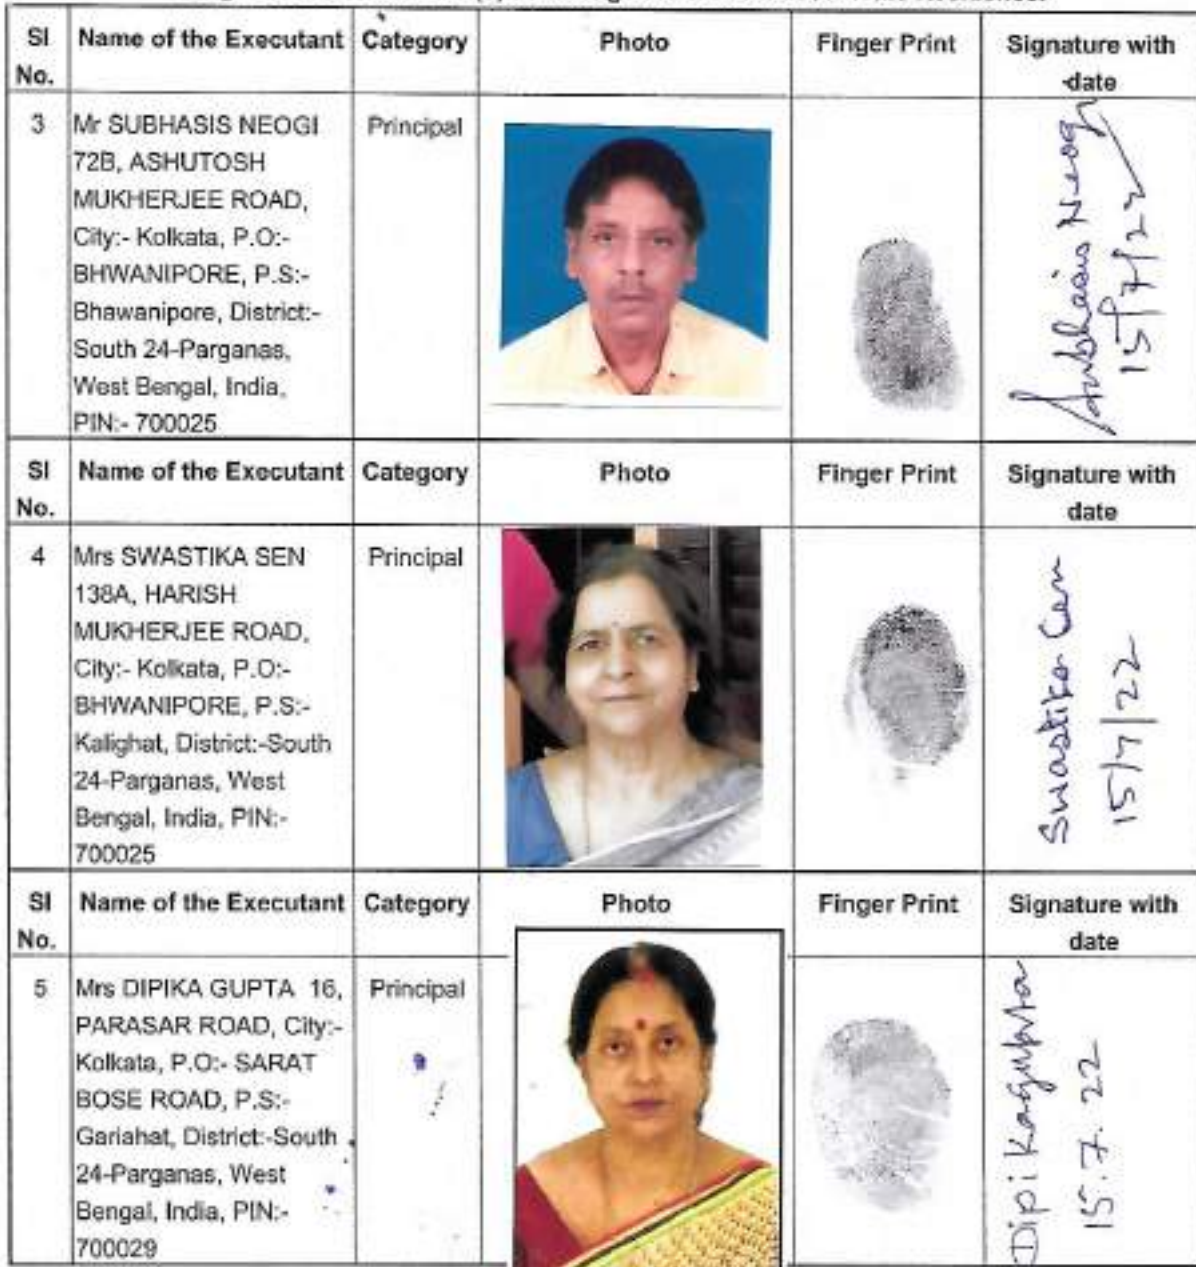 SI No. Name of the Executant Category Photo Finger Print Signature with date
3 Mr SUBHASIS NEOGI Principal
72B, ASHUTOSH
MUKHERJEE ROAD,
City:- Kolkata, P.O:-
BHWANIPORE, P.S:-
Bhawanipore, District:-
South 24-Parganas,
West Bengal, India,
PIN:- 700025
Subhasis Neogi
15/7/22
SI No. Name of the Executant Category Photo Finger Print Signature with date
4 Mrs SWASTIKA SEN Principal
138A, HARISH
MUKHERJEE ROAD,
City:- Kolkata, P.O:-
BHWANIPORE, P.S:-
Kalighat, District:-South
24-Parganas, West
Bengal, India, PIN:-
700025
Swastika Sen
15/7/22
SI No. Name of the Executant Category Photo Finger Print Signature with date
5 Mrs DIPIKA GUPTA 16, Principal
PARASAR ROAD, City:-
Kolkata, P.O:- SARAT
BOSE ROAD, P.S:-
Gariahat, District:-South
24-Parganas, West
Bengal, India, PIN:-
700029
Dipika Gupta
15.7.22